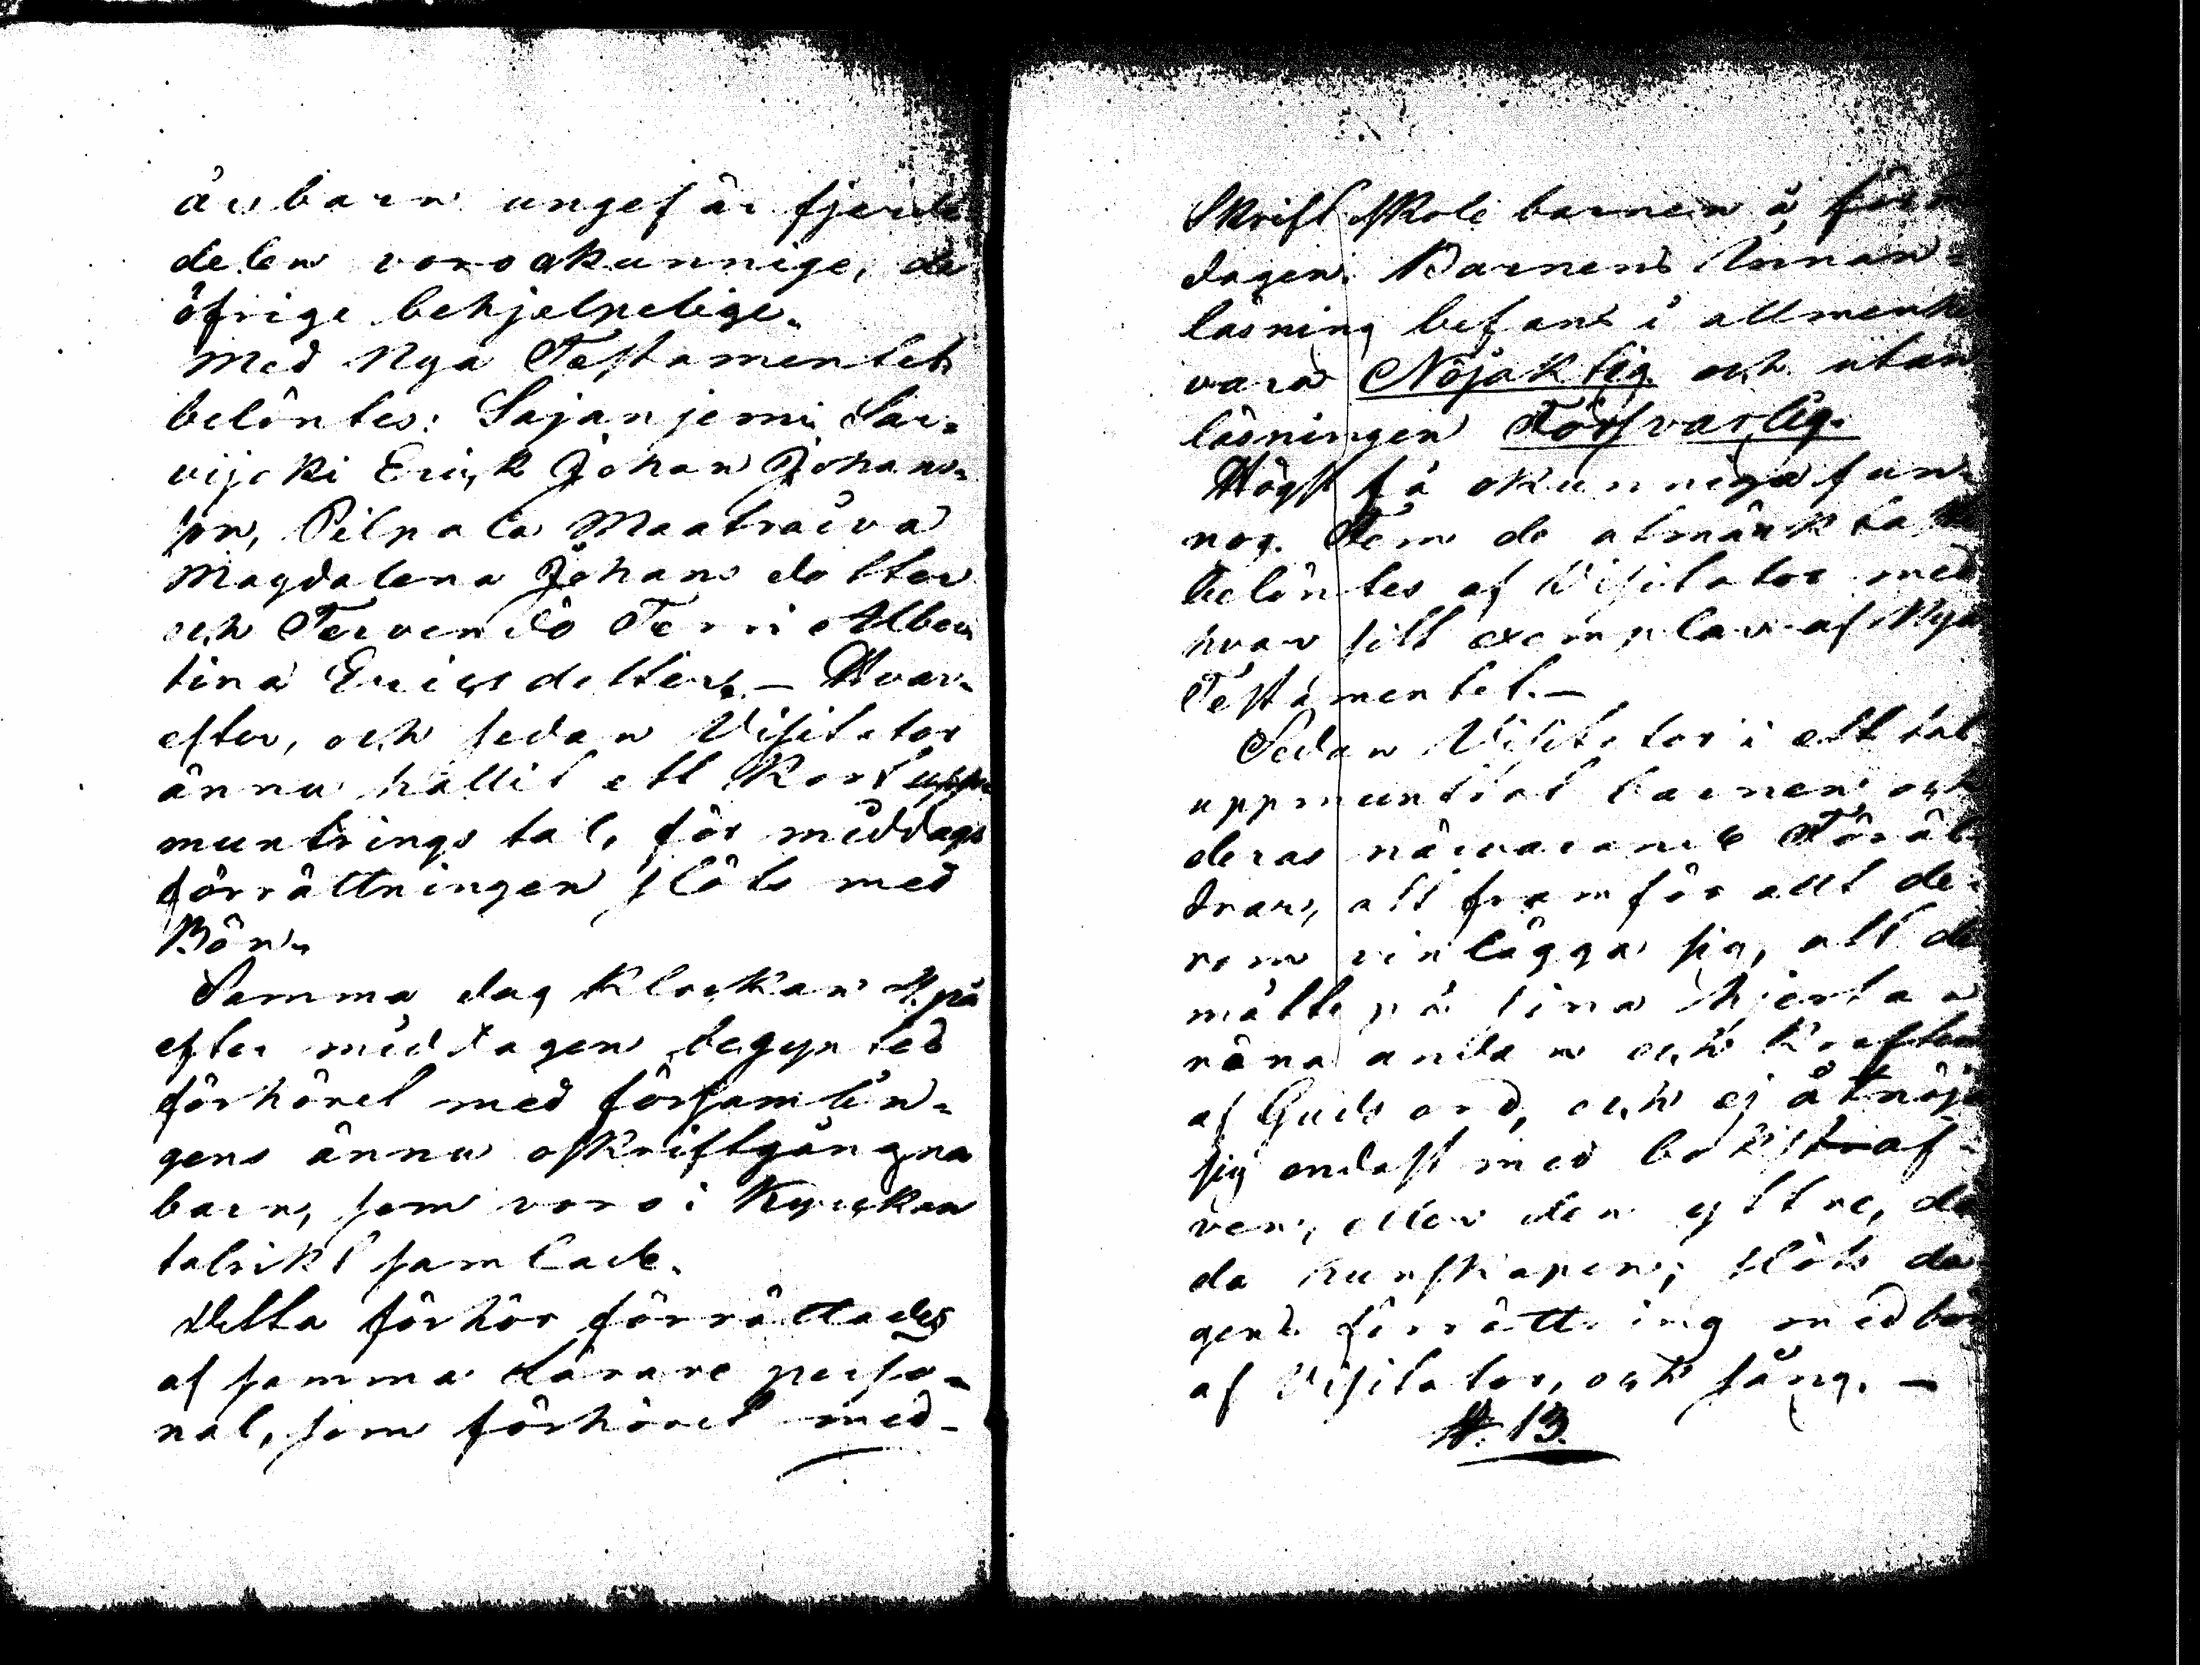 år barn ungefär fjerde
delen voro okunnige, de
öfrige behjelpelige.
Med Nya Testamentet
belöntes: Sajanjemi Sar-
vijoki Erick Johan Johans-
son, Pilpala Maatraiva
Magdalena Johans dotter
och Tervendö Terri Alber
tina Ericsdotter. – Hvar-
efter, och sedan Visitator
ännu hållit ett kort upp-
muntrings tal, för middags
förrättningen slöts med
Bön.
Samma dag Klockan 4 på
efter middagen begyntes
förhöret med församlin-
gens ännu oskriftgångna
barn, som voro i Kyrkan
talrikt samlade.
Detta förhör förrättades
af samma lärare perso-
nal, som förhöret med-
Skriftskole barnen å för
dagen. Barnens Innan-
läsning befans i allmenhe
vara Nöjaktig och utan
läsningen Försvarlig.
Högst få okunniga fun-
nos. Fem de utmärktaste
belöntes af Visitator med
hvar sitt exemplar af Nya
Testamentet. –
Sedan Visitator i ett tal
uppmuntrat barnen och
deras närvarande Föräl-
drar, att framför allt de-
rom vinlägga sig, att de
måtte på sina hjertan
röna andan och kraften
af Guds ord, och ej åtnöja
sig endast med bokstaf-
ven, eller den yttre, dö
da kunskapen; slöts da-
gens förrättning med bön
af Visitator, och sång. –
§. 13.